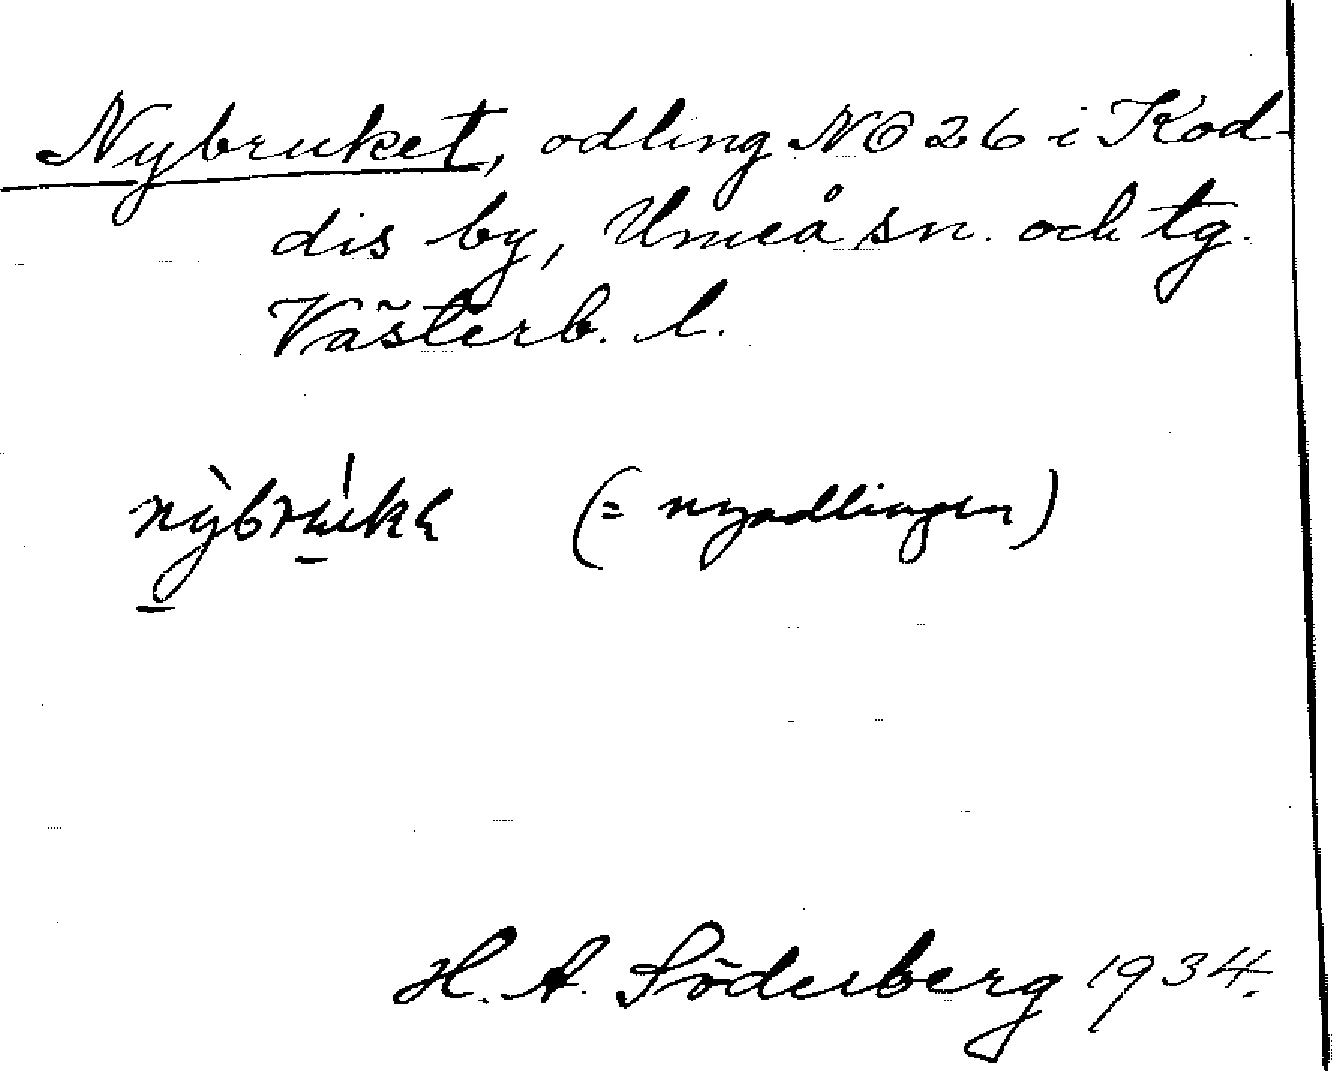 Nybruket, odling NO 26 i Kod-
dis by, Umeå sn. och tg.
Västerb. l.
(= nyodlingen)
H. A. Söderberg 1934.